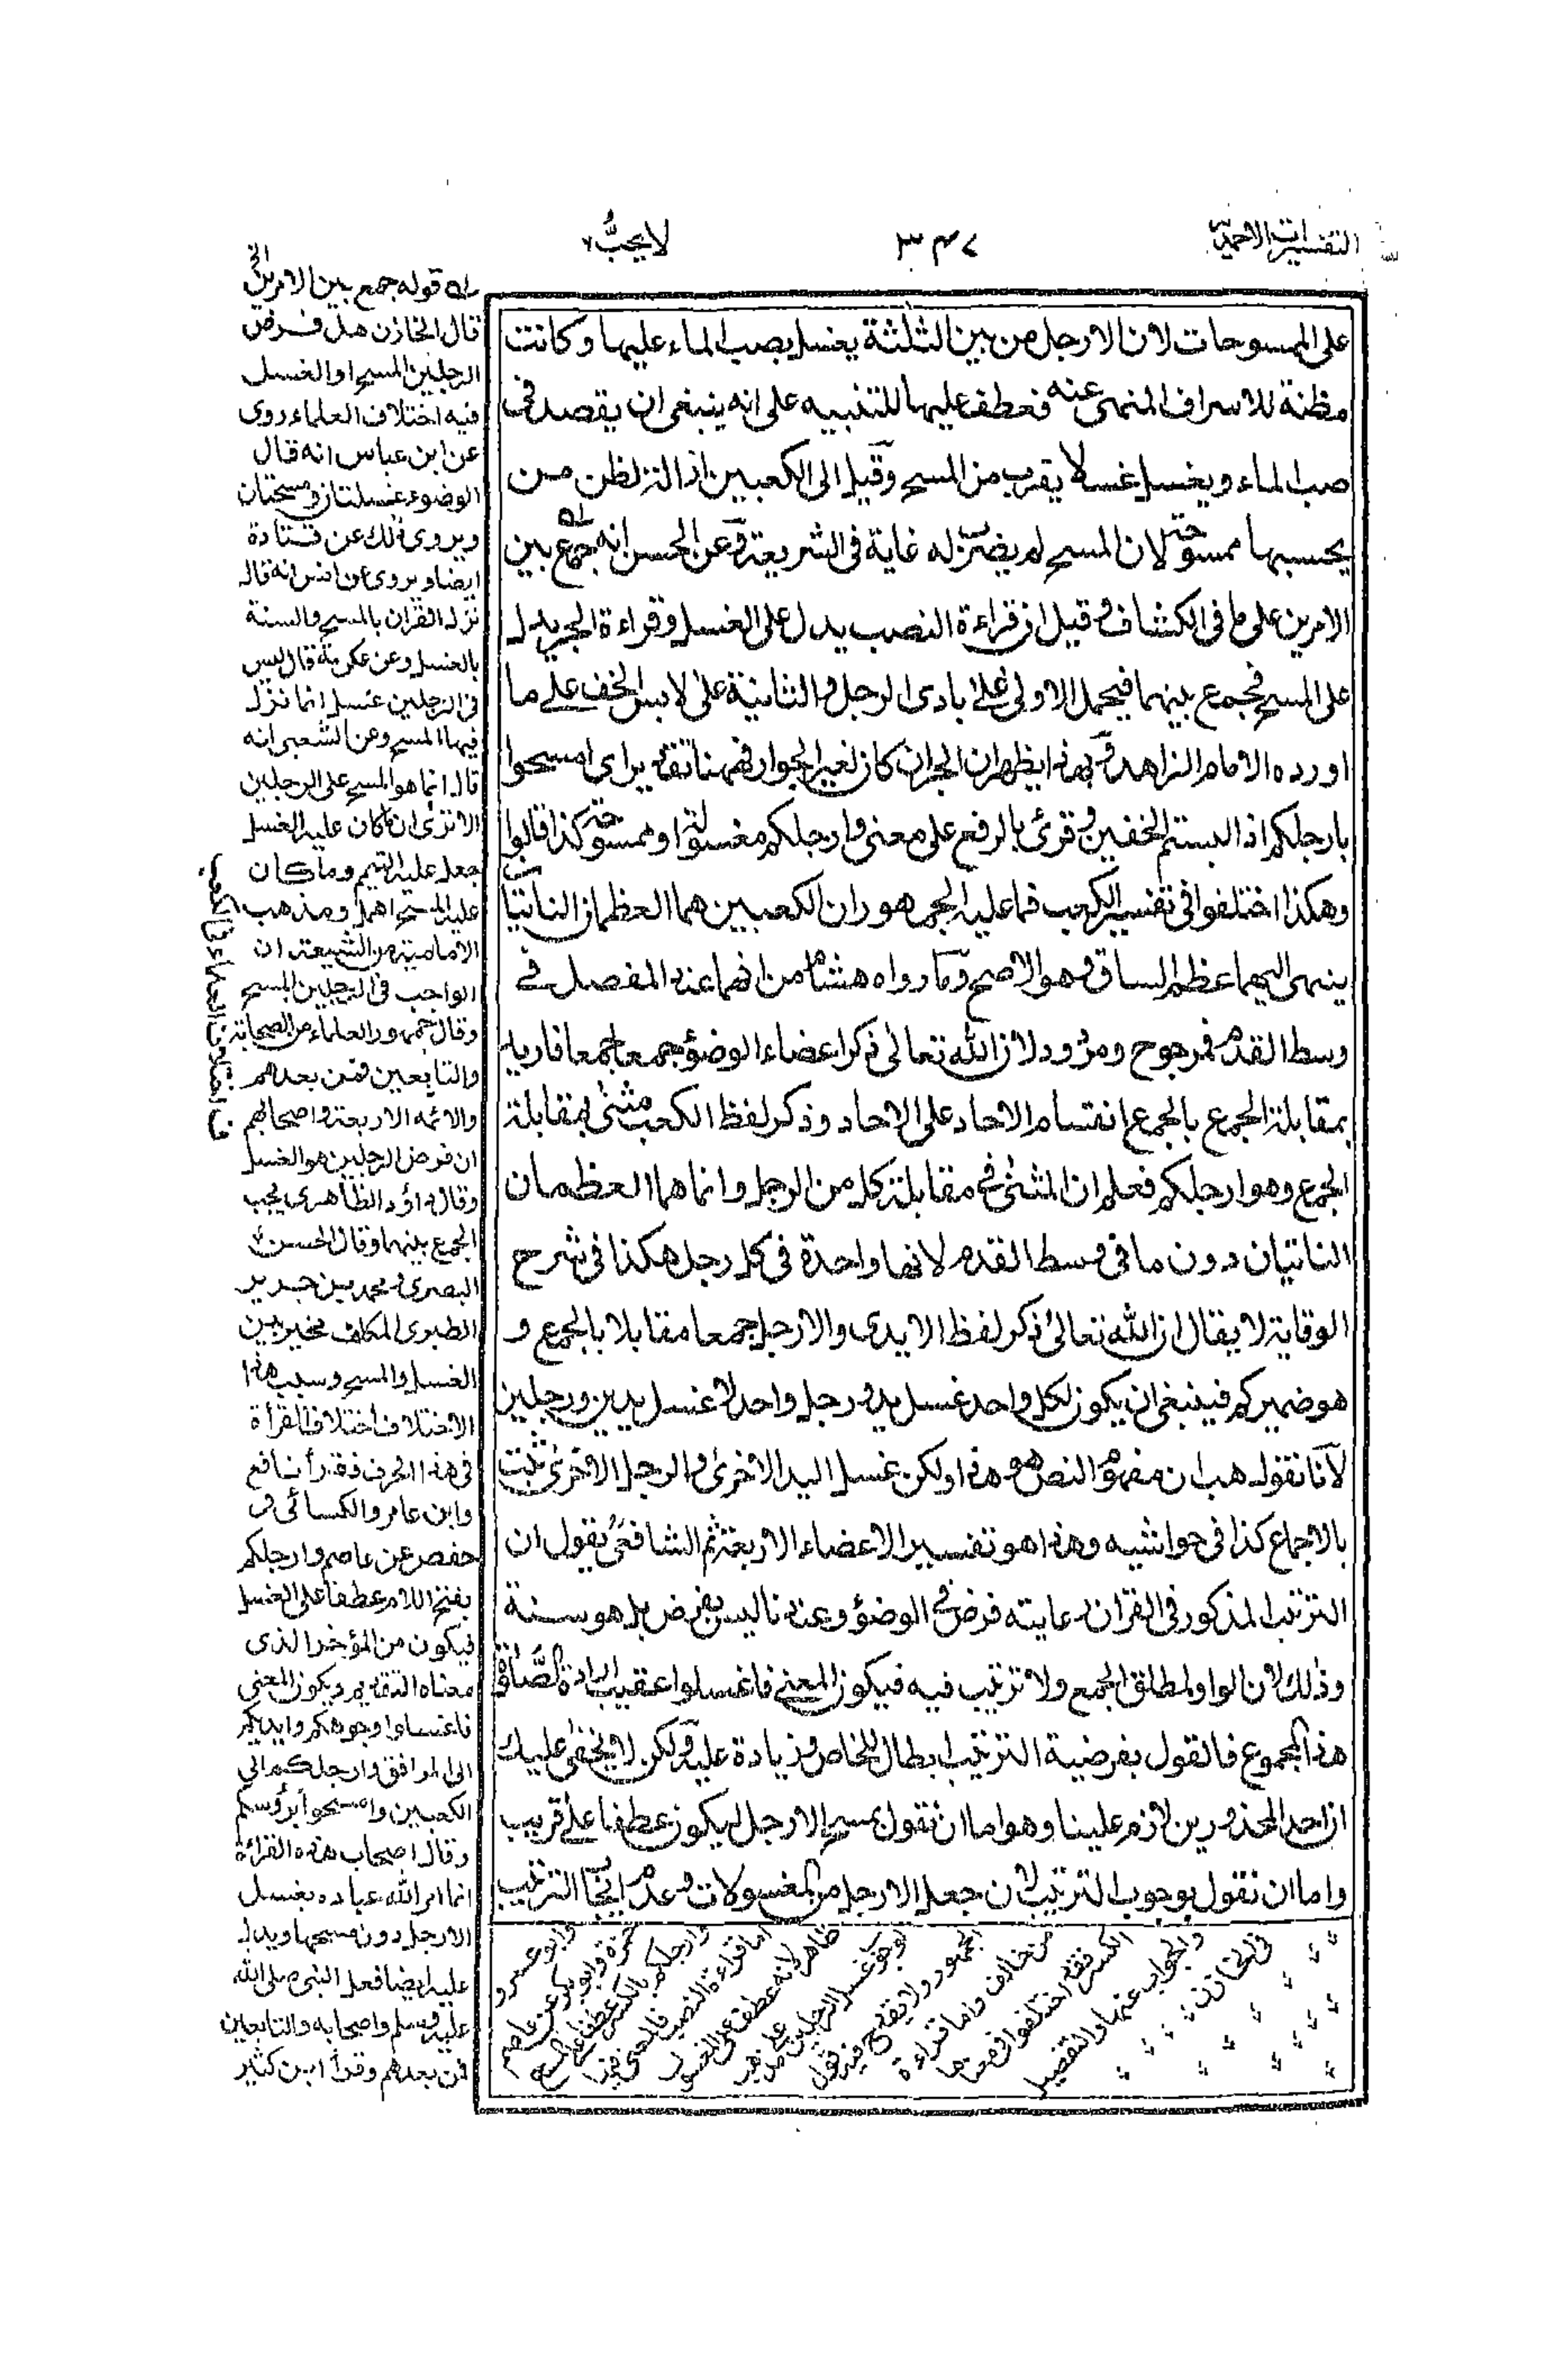 التفسيرات الاحمدية
٣٤٧
لا يحب
على الممسوحات لان الارجل من بين الثلثة يغسل بصب الماء عليها وكانت
مظنة للاسراف المنهى عنه فعطف عليها للتنبيه على انه ينبغى ان يقصد فى
صب الماء ويغسل غسلا يقرب من المسح وقيل الى الكعبين ازالة لظن من
يحسبها ممسوحة لان المسح لم يضرب له غاية فى الشريعة وعن الحسن انه جمع بين
الامرين على ما فى الكشاف وقيل ان قراءة النصب يدل على الغسل وقراءة الجر يدل
على المسح فجمع بينهما فيحمل الاولى على بادى الرجل والثانية على لابس الخف على ما
اورده الامام الزاهد وبهذا يظهر ان الجر ان كان لغير الجوار فههنا تقديرا اى امسحوا
بارجلكم اذا لبستم الخفين وقرئ بالرفع على معنى وارجلكم مغسولة او ممسوحة كذا قالوا
وهكذا اختلفوا فى تفسير الكعب فما عليه الجمهور ان الكعبين هما العظمان الناتيان
ينهى اليهما عظم الساق وهو الاصح وما رواه هشام من انهما عند المفصل فى
وسط القدم فمرجوح ومردود لان الله تعالى ذكر اعضاء الوضوء جمعا جمعا فاريد
بمقابلة الجمع بالجمع انقسام الاحاد على الاحاد وذكر لفظ الكعب مثنى بمقابلة
الجمع وهو ارجلكم فعلم ان المثنى فى مقابلة كل من الرجل وانما هما العظمان
الناتيان دون ما فى وسط القدم لانها واحدة فى كل رجل هكذا فى شرح
الوقاية لا يقال ان الله تعالى ذكر لفظ الايدى والارجل جمعا مقابلا بالجمع و
هو ضميركم فينبغى ان يكون لكل واحد غسل يد ورجل واحد لا غسل يدين ورجلين
لانا نقول هب ان مفهوم النص هو هذا ولكن غسل اليد الاخرى والرجل الاخرى ثبت
بالاجماع كذا فى حواشيه وهذا هو تفسير الاعضاء الاربعة ثم الشافعى يقول ان
الترتيب المذكور فى القران رعايته فرض فى الوضوء وعندنا ليس بفرض بل هو سنة
وذلك لان الواو لمطلق الجمع ولا ترتيب فيه فيكون المعنى فاغسلوا عقيب ارادة الصلوة
هذا المجموع فالقول بفرضية الترتيب ابطال للخاص وزيادة عليه ولكن لا يخفى عليك
ان احد المحذورين لازم علينا وهو اما ان نقول بمسح الارجل ليكون عطفا على قريب
واما ان نقول بوجوب الترتيب لان جعل الارجل من المغسولات وعدم ايجاب الترتيب
له قوله جمع بين الامرين الخ
قال الخازن هل فرض
الرجلين المسح او الغسل
فيه اختلاف العلماء روى
عن ابن عباس انه قال
الوضوء غسلتان ومسحتان
ويروى ذلك عن قتادة
ايضا ويروى عن انس انه قال
نزل القران بالمسح والسنة
بالغسل وعن عكرمة قال ليس
فى الرجلين غسل انما نزل
فيهما المسح وعن الشعبى انه
قال انما هو المسح على الرجلين
الا ترى ان ما كان عليه الغسل
جعل عليه التيمم وما كان
عليه المسح اهمل ومذهب
الامامية من الشيعة ان
الواجب فى الرجلين المسح
وقال جمهور العلماء من الصحابة
والتابعين فمن بعدهم
والائمه الاربعة واصحابهم
ان فرض الرجلين هو الغسل
وقال داؤد الظاهرى يجب
الجمع بينهما وقال الحسن
البصرى ومحمد بن جرير
الطبرى المكلف مخير بين
الغسل والمسح وسبب هذا
الاختلاف اختلاف القرأة
فى هذا الحرف فقرأ نافع
وابن عامر والكسائى و
حفص عن عاصم وارجلكم
بفتح اللام عطفا على الغسل
فيكون من المؤخر الذى
معناه التقديم ويكون المعنى
فاغسلوا وجوهكم وايديكم
الى المرافق وارجلكم الى
الكعبين وامسحوا برؤسكم
وقال اصحاب هذه القرائة
انما امر الله عباده بغسل
الارجل دون مسحها ويدل
عليه ايضا فعل النبى صلى الله
عليه وسلم واصحابه والتابعين
فمن بعدهم وقرأ ابن كثير
وابو عمرو
حمزة وابو بكر عن عاصم
وارجلكم بالكسر عطفا على المسح
اما قراءة النصب فالمعنى فيها
ظاهر لانه عطف على المغسول
لوجوب غسل الرجلين على مذهب
الجمهور ولا يقدح فيه قول
من خالف واما قراءة
الكسر فقد اختلفوا فى معناها
والجواب عنها والتفصيل
فى الخازن